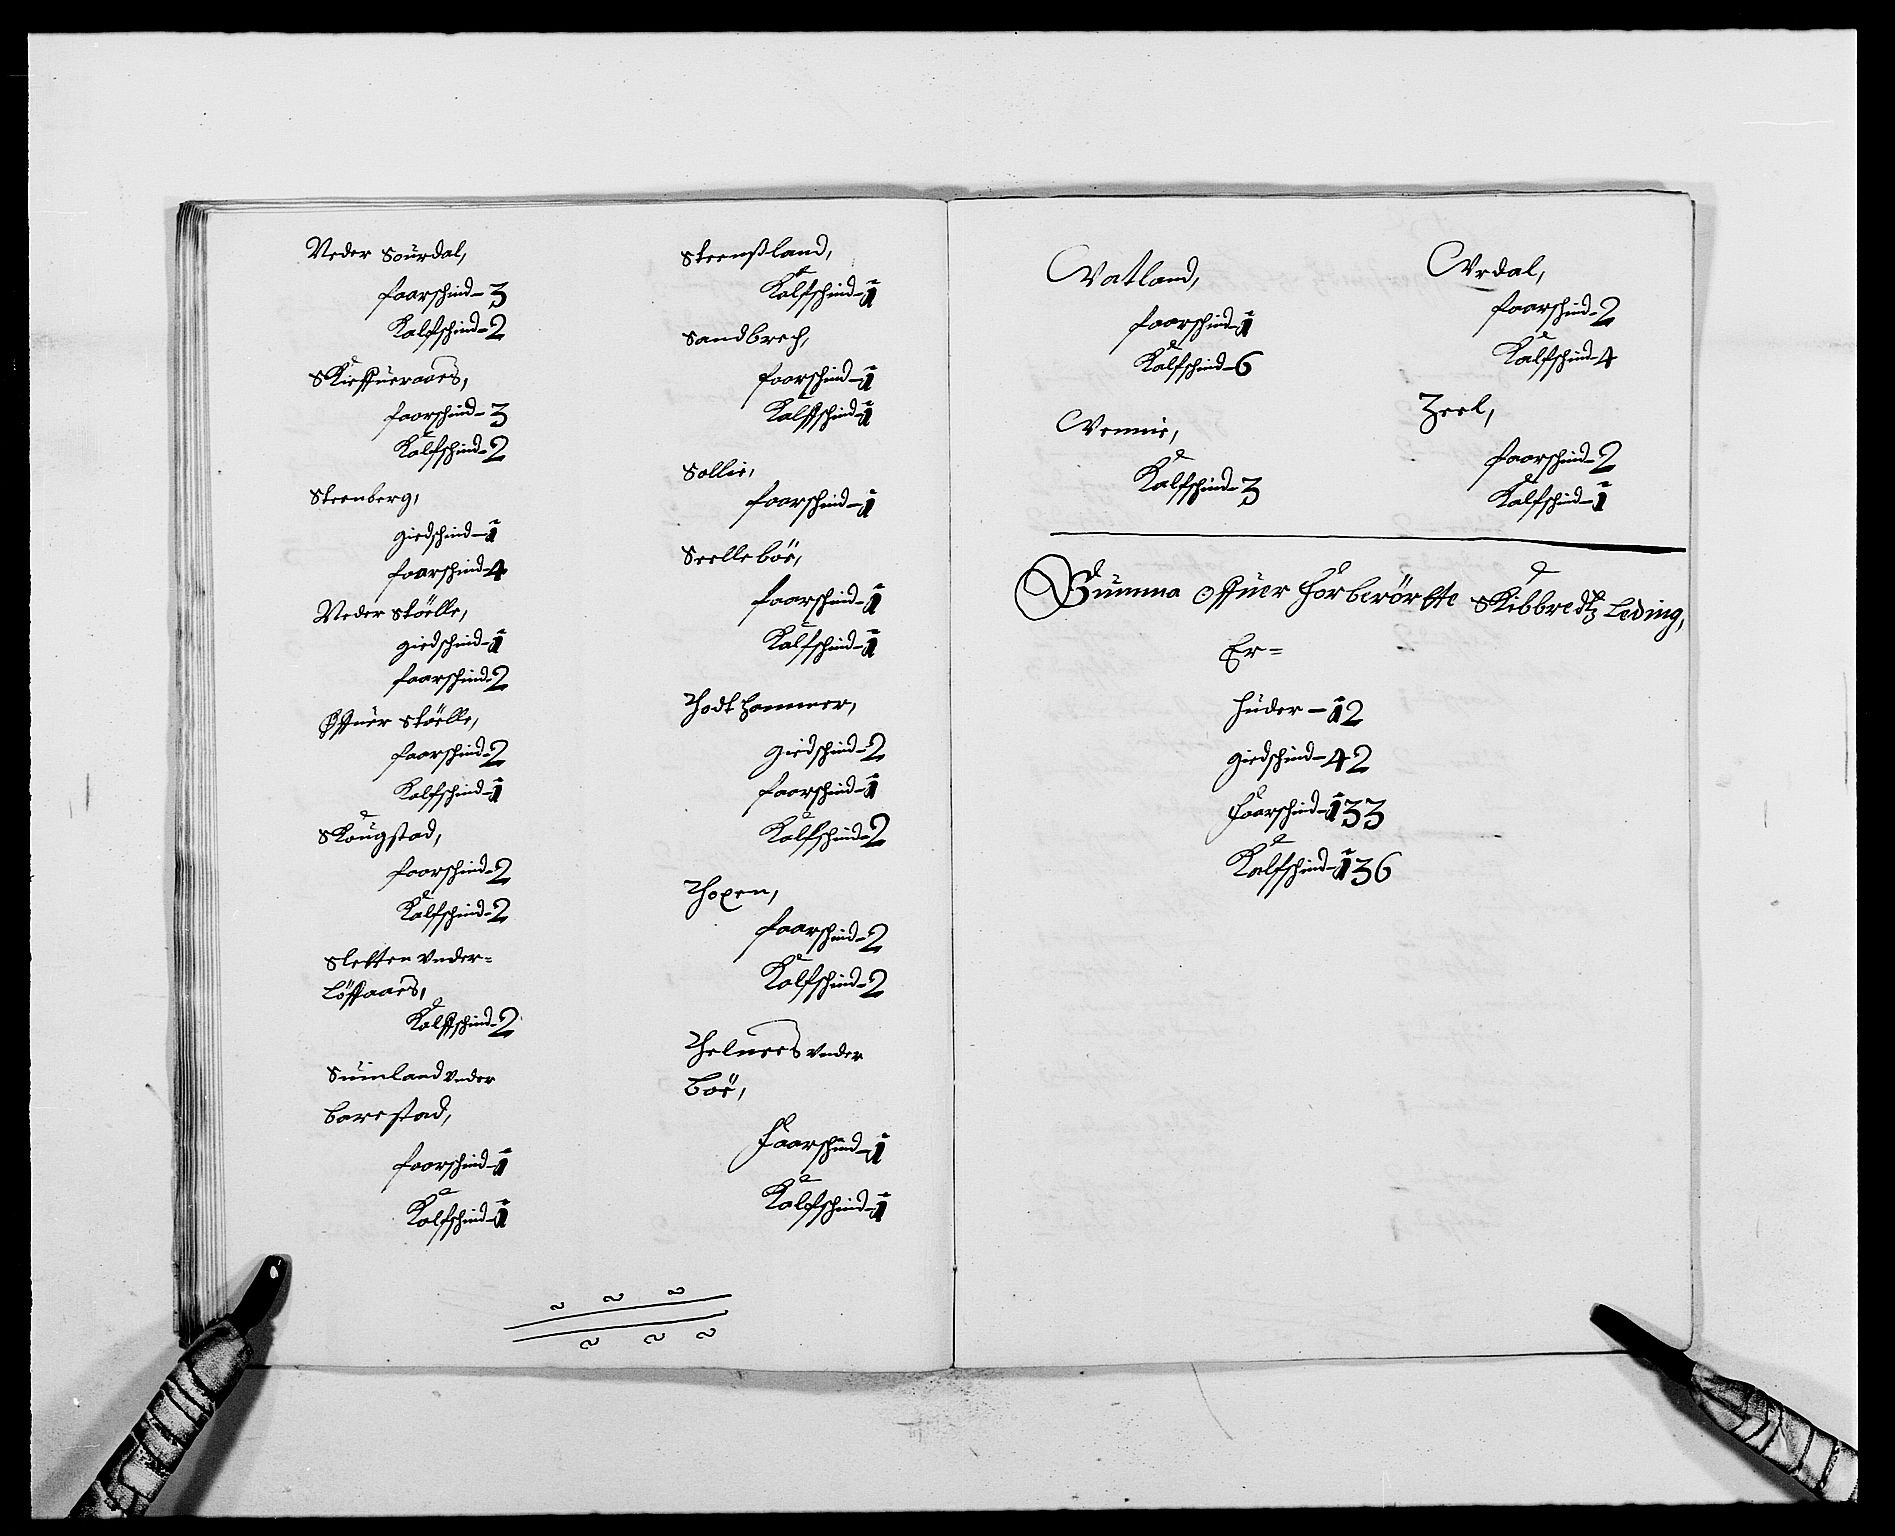 Neder Sourdal,
faarschind - 3
Kalfschind - 2
Skieffueraaes,
faarschind - 3
Kalfschind - 2
Steenberg,
giedschind - 1
faarschind - 4
Neder Støelle,
giedschind - 1
faarschind - 2
Øffuer Støelle,
faarschind - 2
Kalfschind - 1
Skougstad,
faarschind - 2
Kalfschind - 2
Sletten vnder=
Løffaaes,
Kalffschind - 2
Suinland vnder
Barestad,
faarschind - 1
Kalfschind - 1
Steensland,
Kalfschind - 1
Sandbrech,
faarschind - 1
Kalffschind - 1
Sollie,
faarschind - 1
Seellebøe,
faarschind - 1
Kalfschind - 1
Thodt hammer,
giedschind - 2
faarschind - 1
Kalfschind - 2
Thoxen,
faarschind - 2
Kalfschind - 2
Thelnees vnder
Bøe,
Faarschind - 1
Kalfschind - 1
Vatland,
faarschind - 1
Kalfschind - 6
Vemmie,
Kalfschind - 3
Vrdal,
faarschind - 2
Kalfschind - 4
Zeel,
faarschind - 2
Kalfschind - 1
Summa Offuer Forberørtte Skibbredtz Leding,
Er=
Huder - 12
giedschind - 42
Faarschind - 133
Kalfschind - 136